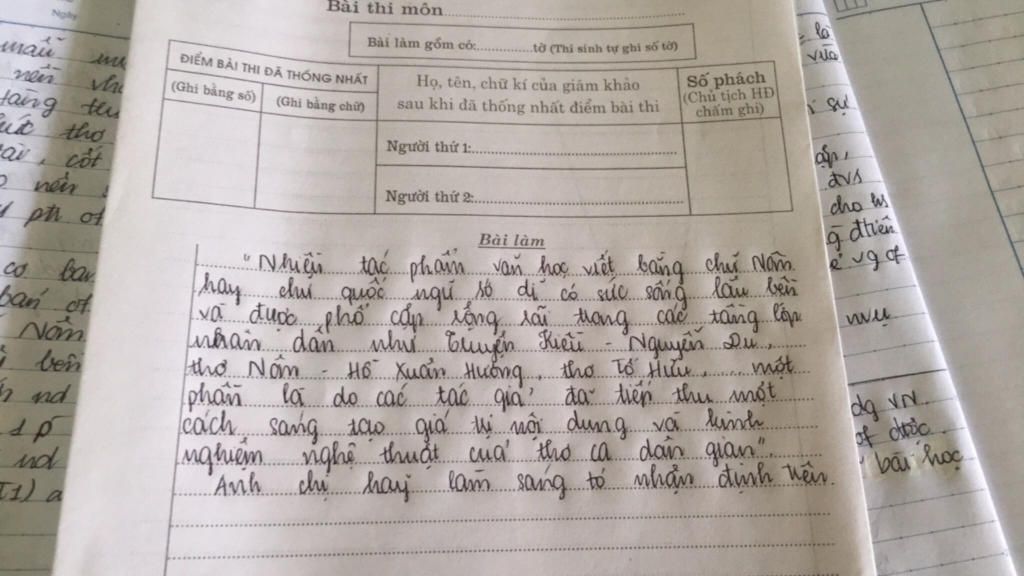 Bài thi môn
Bài làm gồm có:..............tờ (Thí sinh tự ghi số tờ)
ĐIỂM BÀI THI ĐÃ THỐNG NHẤT
(Ghi bằng số)
(Ghi bằng chữ)
Họ, tên, chữ kí của giám khảo
sau khi đã thống nhất điểm bài thi
Số phách
(Chủ tịch HĐ
chấm ghi)
Người thứ 1:
Người thứ 2:
Bài làm
"Nhiều tác phẩm văn học viết bằng chữ Nôm
hay chữ quốc ngữ sở dĩ có sức sống lâu bền
và được phổ cập rộng rãi trong các tầng lớp
nhân dân như Truyện Kiều - Nguyễn Du,
thơ Nôm - Hồ Xuân Hương, thơ Tố Hữu,... một
phần là do các tác giả đã tiếp thu một
cách sáng tạo giá trị nội dung và kinh
nghiệm nghệ thuật của thơ ca dân gian".
Anh chị hãy làm sáng tỏ nhận định trên.
Ngày
thơ
cốt
nên
pth of
Nôm
bền
nd
nd
là
vừa
sự
đvs
cho
vg of
dg VN
of được
bài học